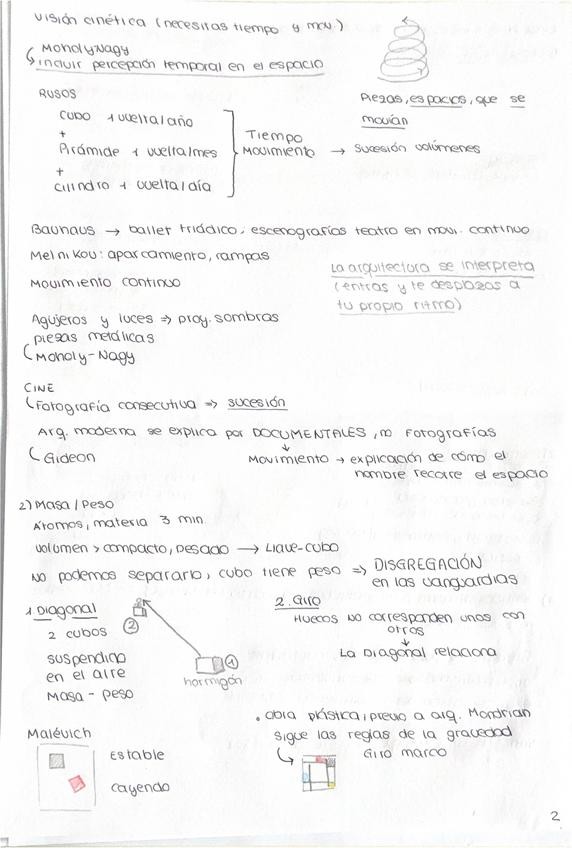 visión cinética (necesitas tiempo y mov.)
Moholy Nagy
incluir percepción temporal en el espacio
Piezas, espacios, que se
movían
RUSOS
Cubo 1 vuelta/año
+
Pirámide 1 vuelta/mes
+
Cilindro 1 vuelta/día
Tiempo
Movimiento → sucesión volúmenes
Bauhaus → ballet triádico, escenografías teatro en mov. continuo
Melnikov: aparcamiento, rampas
Movimiento continuo
La arquitectura se interpreta
(entras y te desplazas a
tu propio ritmo)
Agujeros y luces => proy. sombras
piezas metálicas
Moholy-Nagy
CINE
Fotografía consecutiva => sucesión
Arq. moderna se explica por DOCUMENTALES, no Fotografías
Gideon
Movimiento → explicación de cómo el
hombre recorre el espacio
2) Masa / Peso
Átomos, materia 3 min.
volumen > compacto, pesado → Llave-cubo
No podemos separarlo, cubo tiene peso => DISGREGACIÓN
en las vanguardias
1. Diagonal
2 cubos
suspendido
en el aire
Masa - peso
2
1
hormigón
2. Giro
Huecos no corresponden unos con
otros
↓
La Diagonal relaciona
Malévich
Estable
cayendo
• Obra plástica, previo a arq. Mondrian
sigue las reglas de la gravedad
Giro marco
2